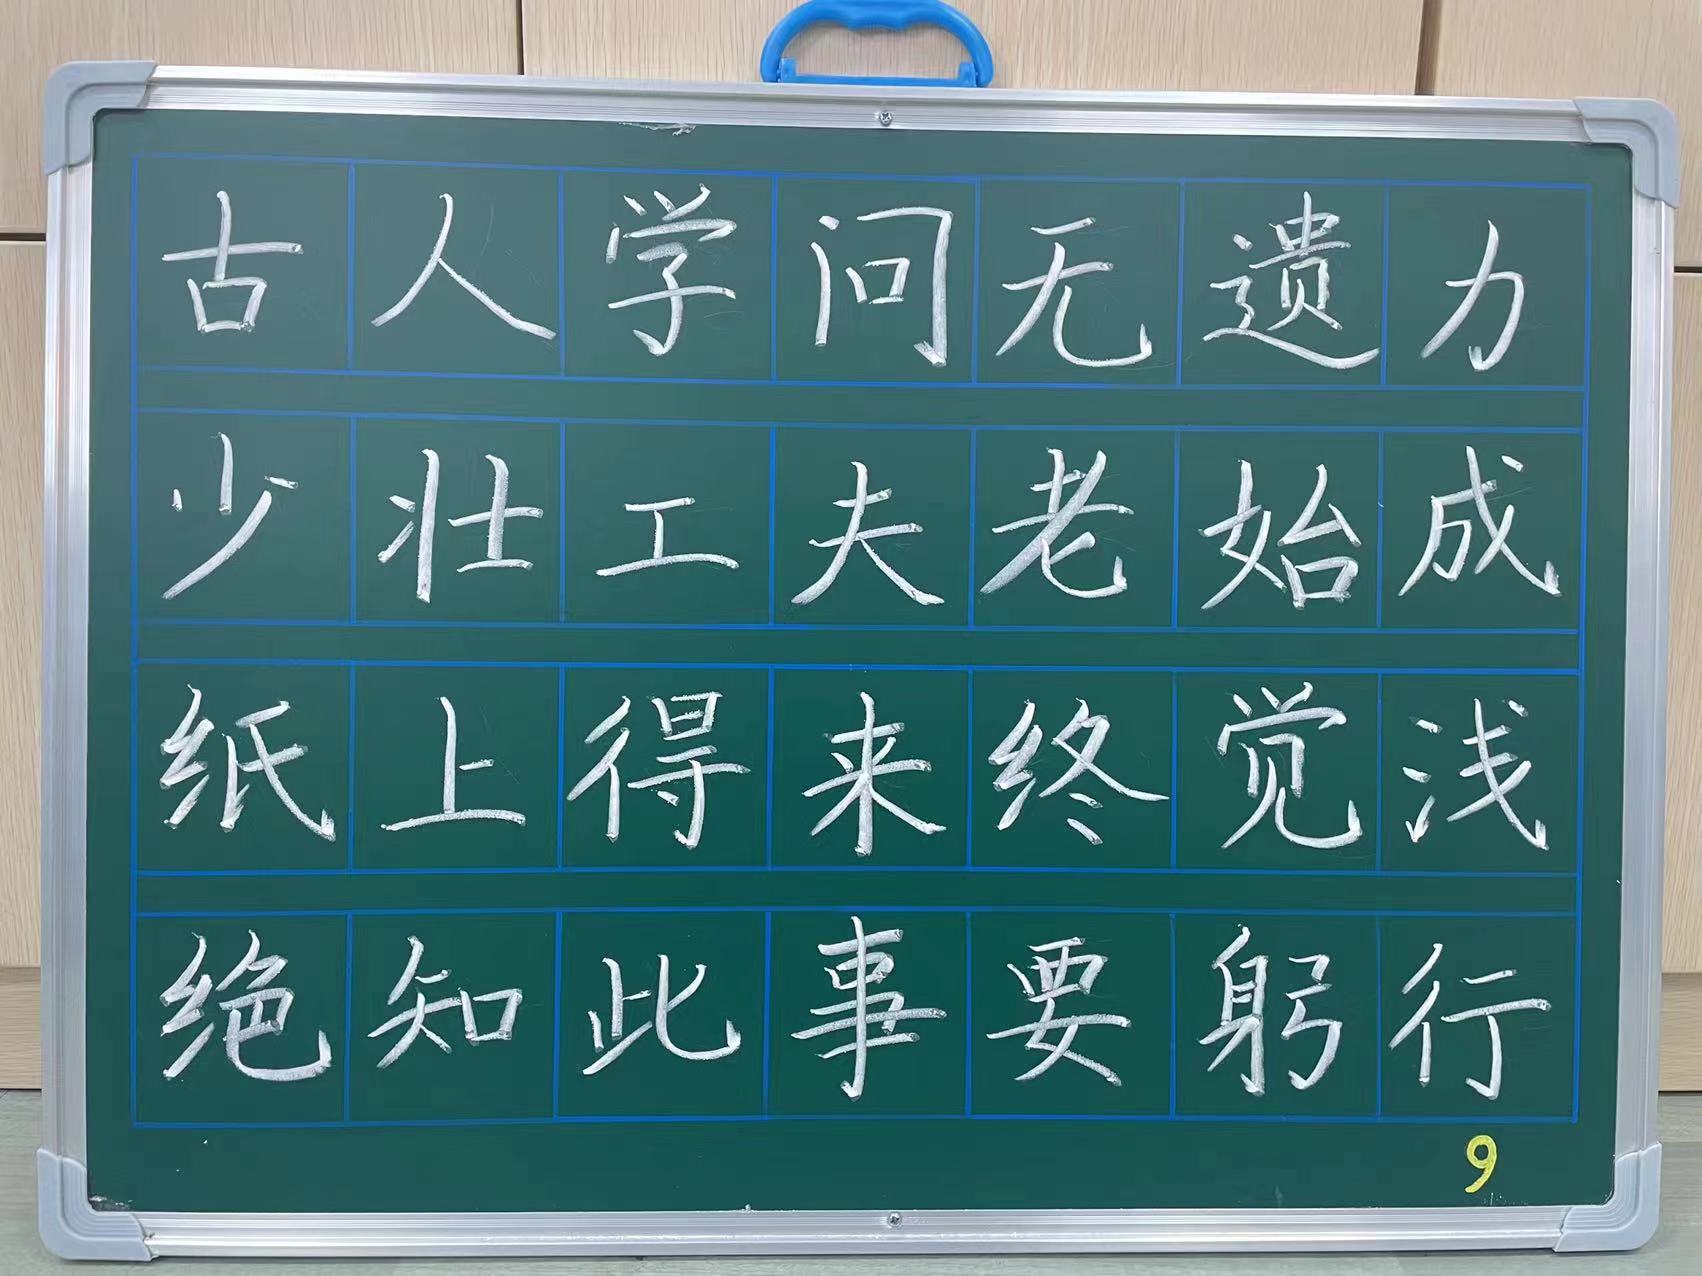 古人学问无遗力
少壮工夫老始成
纸上得来终觉浅
绝知此事要躬行
9